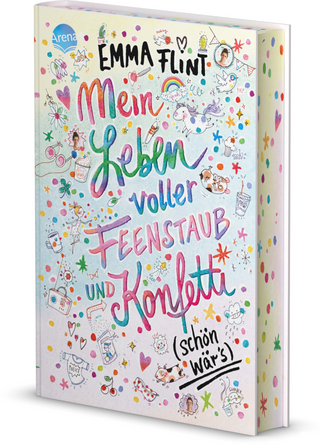 Arena
EMMA FLINT
Mein
Leben
voller
FEENSTAUB
UND Konfetti
(schön
wär's)